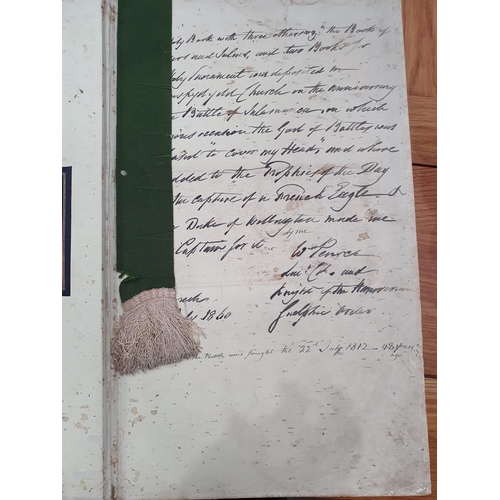 Book with three others viz "the Book of
and Psalms, and two Books for
Sacrament and deposited in
Church on the Anniversary
Battle of Salamanca, on which
occasion the God of Battles was
"to cover my Head," and where
added to the Trophies of the Day
the capture of a French Eagle &
Duke of Wellington made me
Captain for it
by me
Wm Pearce
Lieut Col. and
Knight of the Hanoverian
Guelphic Order
1860
Battle was fought the 22d July 1812 - 48 years
ago